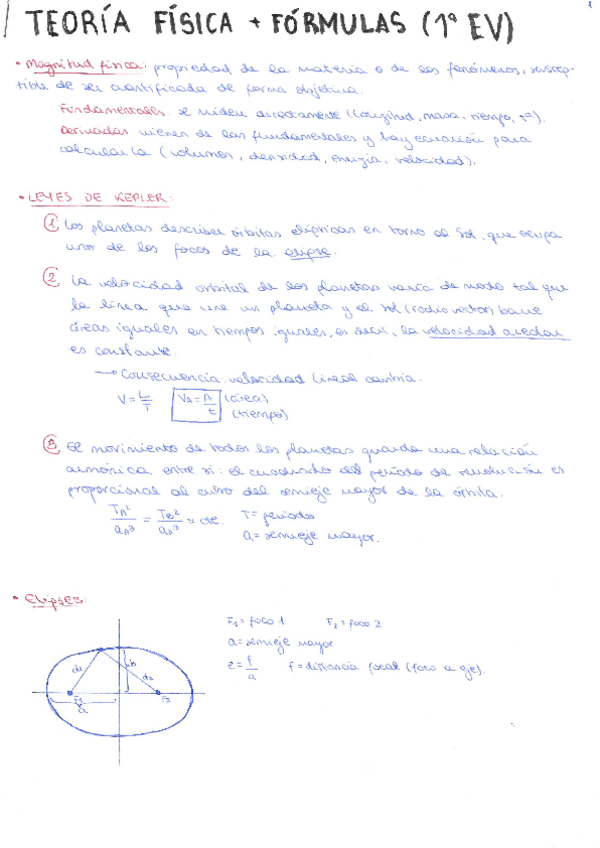 1
TEORÍA FÍSICA + FÓRMULAS (1ª EV)
• Magnitud física: propiedad de la materia o de los fenómenos, suscep-
tible de ser cuantificada de forma objetiva.
Fundamentales: se miden directamente (longitud, masa, tiempo, tª).
Derivadas vienen de las fundamentales y hay ecuación para
calcularla (volumen, densidad, energía, velocidad).
• LEYES DE KEPLER:
① Los planetas describen órbitas elípticas en torno al Sol, que ocupa
uno de los focos de la elipse.
② La velocidad orbital de los planetas varía de modo tal que
la línea que une un planeta y el sol (radio vector) barre
áreas iguales en tiempos iguales, es decir, la velocidad areolar
es constante.
→ Consecuencia: velocidad lineal cambia.
V = L/T VA = A/t (área)
(tiempo)
③ El movimiento de todos los planetas guarda una relación
armónica entre sí: el cuadrado del período de revolución es
proporcional al cubo del semieje mayor de la órbita.
TA²/aA³ = TB²/aB³ = cte. T = período
a = semieje mayor.
• Elipses:
F1 = foco 1 F2 = foco 2
a = semieje mayor
e = f/a f = distancia focal (foco a eje).
b
F1
F2
a